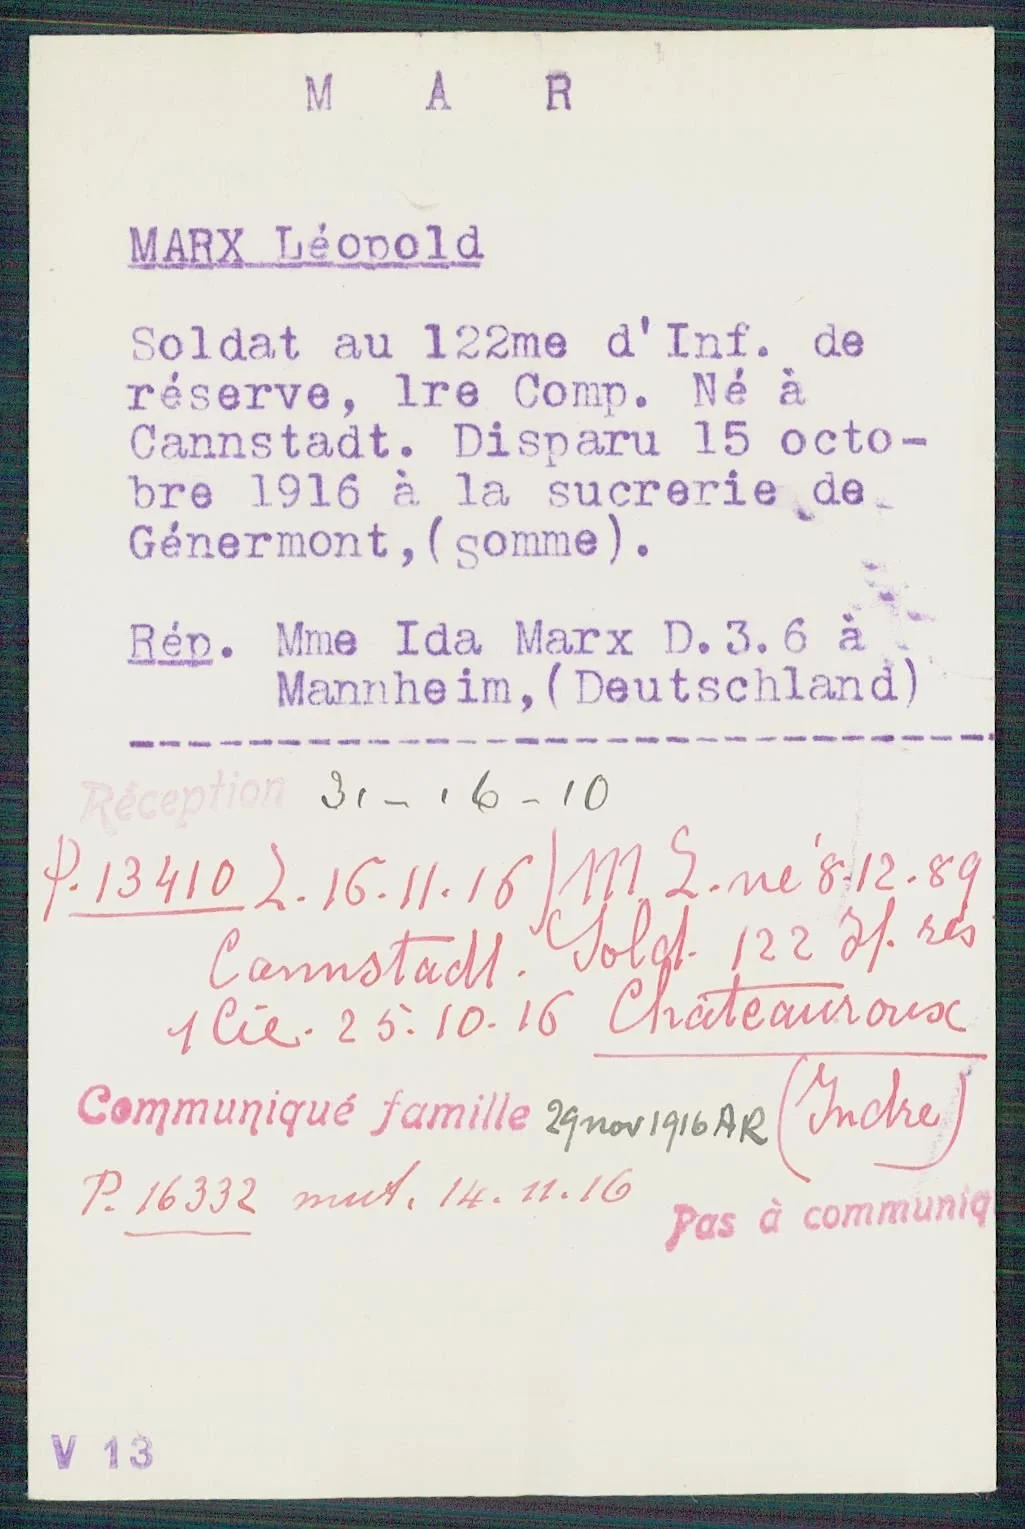 M A R
MARX Léopold
Soldat au 122me d'Inf. de
réserve, 1re Comp. Né à
Cannstadt. Disparu 15 octo-
bre 1916 à la sucrerie de
Génermont,(somme).
Rép. Mme Ida Marx D.3.6 à
Mannheim,(Deutschland)
Réception 31-16-10
P.13410 L.16.11.16) M L. né 8.12.89
Cannstadt. Sold. 122 If. res
1 Cie. 25.10.16 Châteauroux
(Indre)
Communiqué famille 29 nov 1916 AR
P. 16332 mut. 14.11.16
Pas à communiq
V 13